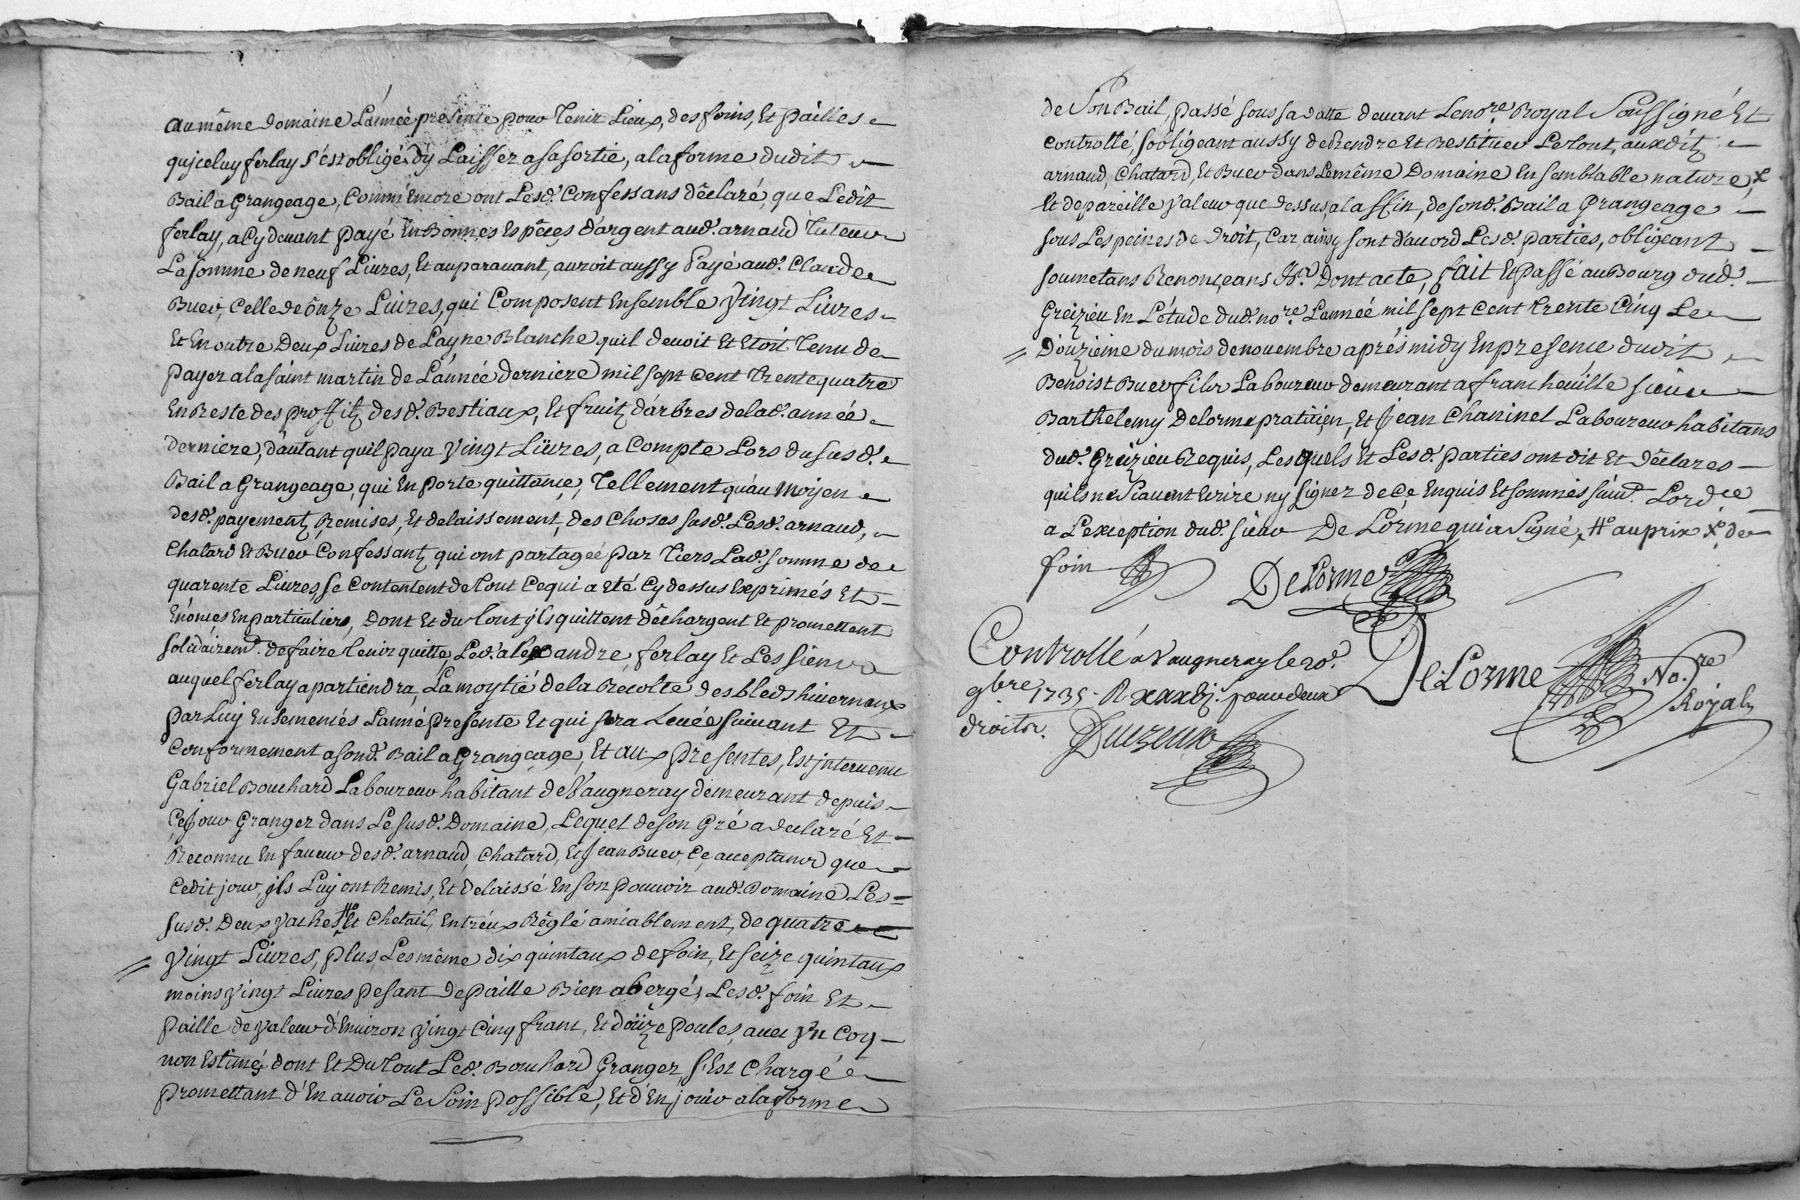 au même domaine L'année presente pour Tenir Lieux, des foins, Et pailles
qu'iceluy ferlay s'est obligé d'y Laisser a sa sortie, a la forme dudit
Bail a Grangeage, Comm'encore ont Lesd. Confessans déclaré, que Ledit
ferlay, a Cy devant payé En Bonnes Espèces d'argent aud. arnaud Tuteur
La somme de neuf Livres, Et auparavant, auroit aussy Payé aud. Claude
Buer, Celle de ônze Livres, qui Composent Ensemble Vingt Livres
Et En outre Deux Livres de Layne Blanche quil devoit Et Etoit Tenu de
payer a la saint martin de L'année derniere mil sept Cent Trente quatre
En Reste des proffitz desd. Bestiaux, Et fruitz d'arbres de lad. année
derniere, d'autant quil paya Vingt Livres, a Compte Lors du susd.
Bail a Grangeage, qui En porte quittance, Tellement qu'au Moyen
desd. payementz, Remises, Et delaissement, des Choses susd. Lesd. arnaud,
Chatard Et Buer Confessantz, qui ont partagéé par Tiers Lad. somme de
quarente Livres, se Contentent de Tout Ce qui a Eté Cy dessus Exprimés Et
Enonçes En particuliers, Dont Et du Tout ils quittent déchargent Et promettent
solidairemt. de faire Tenir quitte, Led. alexandre, ferlay Et Les siens
auquel ferlay apartiendra, La moytié de la Recolte des bleds hivernaux
par Luy Ensemencés L'anné presente Et qui sera Levéé suivant Et
Conformement a sond. Bail a Grangeage, Et aux presentes, Est jntervenu
Gabriel Bouchard Laboureur habitant de Vaugneray demeurant depuis
Ce jour Granger dans Le susd. Domaine, Lequel de son Gré a declaré Et
Reconnu En faveur desd. arnaud, Chatard, Et Jean Buer, Ce acceptans que
Cedit jour, ils Luy ont Remis, Et delaissé En son pouvoir aud. Domaine Les
susd. Deux Vaches #e Chetail, Entr'eux Réglé amiablement, de quatre
Vingt Livres, plus Les même dix quintaux de foin, Et seize quintaux
moins Vingt Livres pesant de paille Bien abergé, Lesd. foin Et
paille de Valeur d'Environ Vingt Cinq franc, Et doüze poules, avec Vn Coq
non Estimé, dont Et Du Tout Led. Bouchard Granger s'Est Chargé
promettant d'En avoir Le soin possible, Et d'En jouir a la forme
de son Bail, passé sous sa datte devant Le nore. Royal soussigné Et
Controllé, s'obligeant aussy de Rendre Et Restituer Le Tout, auxditz
arnaud, Chatard, Et Buer dans Le même Domaine En semblable nature,
Et de pareille Valeur que dessus, a la ffin, de sond. Bail a Grangeage
sous Les peines de droit, Car ainsy sont d'accord Lesd. parties, obligeant
soumetans Renonçeans &a. Dont acte, fait Et passé au Bourg dud.
Greizieu En L'étude dud. nore. L'année mil sept cent trente Cinq Le
Douzieme du mois de novembre aprés midy En presence dudit
Benoist Buer fils Laboureur demeurant a francheville sieur
Barthelemy Delorme praticien, Et Jean Chaninel Laboureur habitans
dud. Greizieu Requis, Lesquels Et Lesd. parties ont dit Et déclarés
quils ne sçavent Ecrire ny signer de Ce Enquis Et sommés suivt. Lordce
a L'exception dud. sieur De Lorme qui a signé, #e au prix X. de
foin
De Lorme
Controllé a Vaugneray le 20e.
9bre 1735. R xxxvj s. pour deux
droits.
De Lorme No.re
Royal